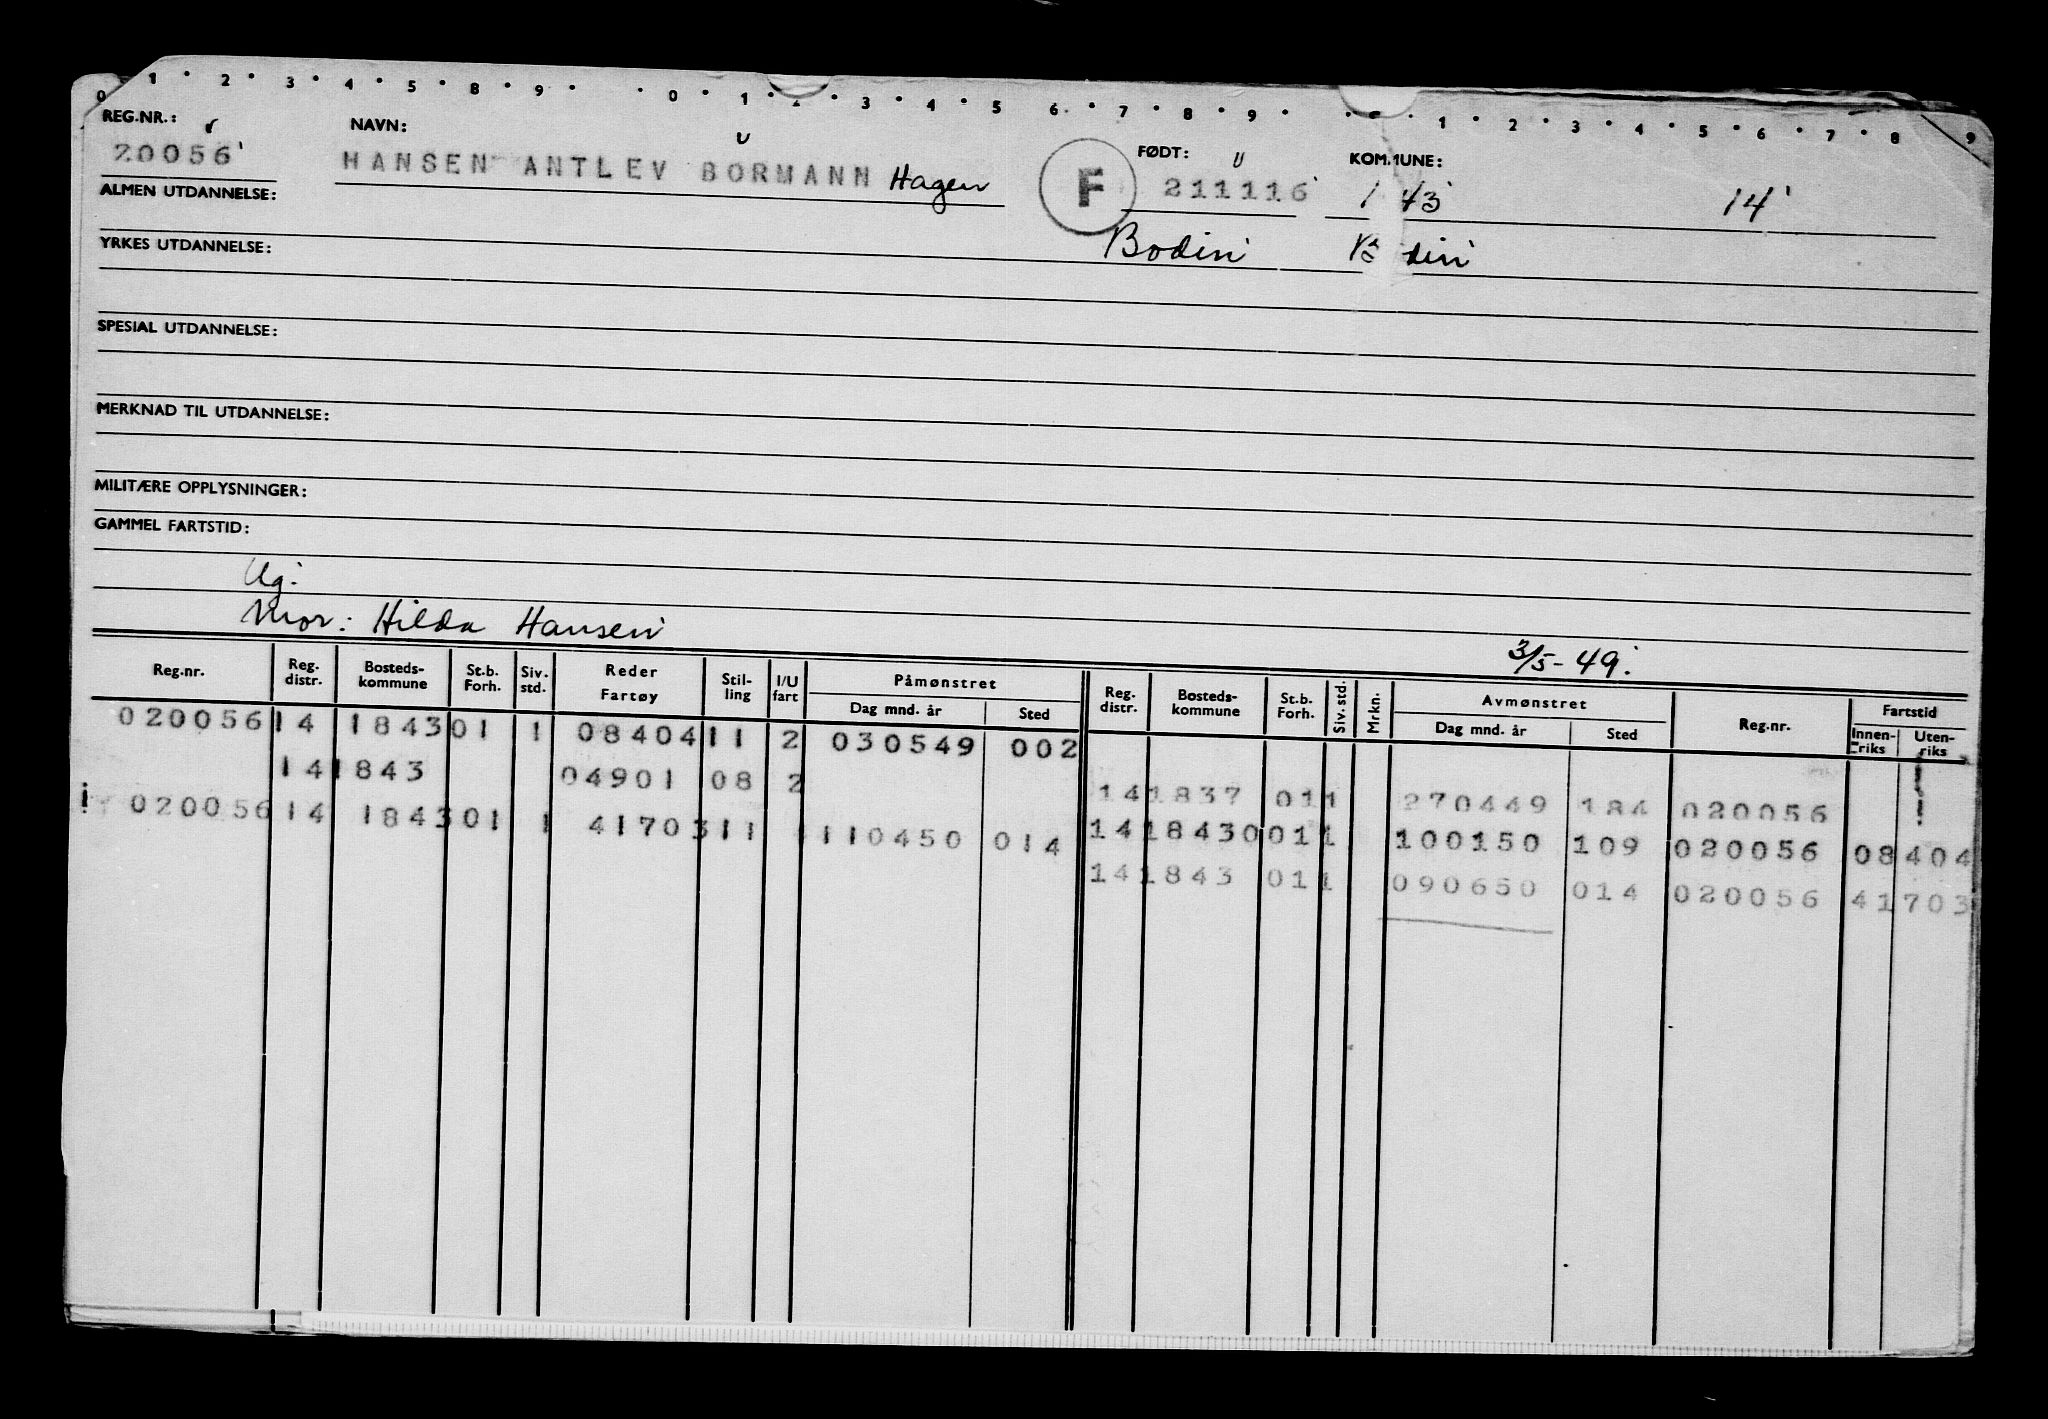 0 1 2 3 4 5 8 9 0 1 2 3 4 5 6 7 8 9 1 2 3 4 5 6 7 8 9
REG.NR.: NAVN: FØDT: KOMMUNE:
20056 HANSEN ANTLEV BORMANN Hagen F 211116 1 43 14
ALMEN UTDANNELSE:
Bodin B din
YRKES UTDANNELSE:
SPESIAL UTDANNELSE:
MERKNAD TIL UTDANNELSE:
MILITÆRE OPPLYSNINGER:
GAMMEL FARTSTID:
Ug.
Mor: Hilda Hansen
3/5-49.
Reg.nr. Reg. distr. Bosteds-kommune St.b. Forh. Siv. std. Reder Fartøy Stil-ling I/U fart Påmønstret Dag mnd. år Sted Reg. distr. Bosteds-kommune St.b. Forh. Siv. std. Mrkn. Avmønstret Dag mnd. år Sted Reg.nr. Fartstid Innen-riks Uten-riks
020056 14 1843 01 1 08404 11 2 030549 002
14 1843 04901 08 2 14 1837 01 1 270449 184 020056
020056 14 1843 01 1 41703 11 110450 014 14 18430 01 1 100150 109 020056 08404
14 1843 01 1 090650 014 020056 41703